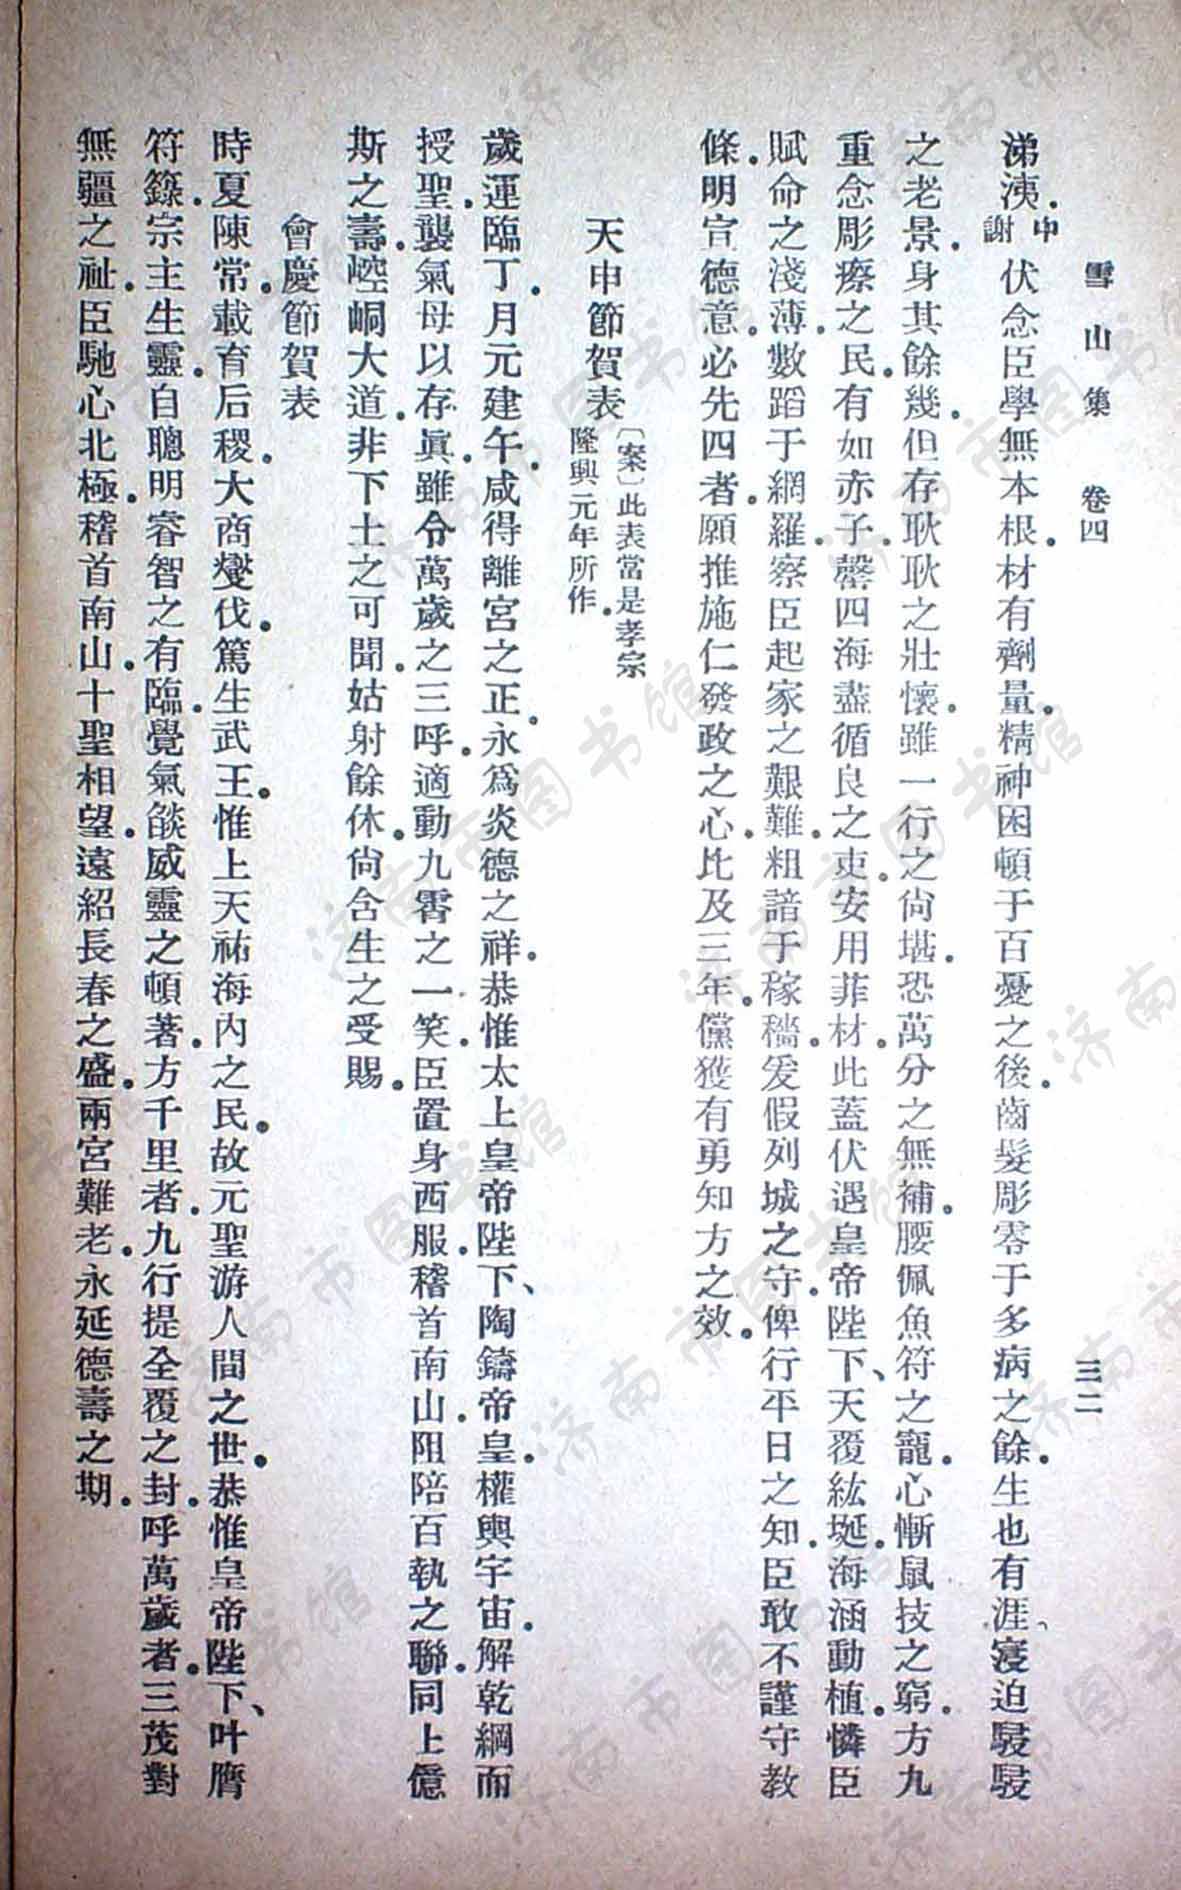 雪山集　卷四　三二
涕洟。中謝伏念臣學無本根。材有劑量。精神困頓于百憂之後。齒髮彫零于多病之餘。生也有涯、寖迫駸駸
之老景。身其餘幾。但存耿耿之壯懷。雖一行之尙堪。恐萬分之無補。腰佩魚符之寵。心慚鼠技之窮。方九
重念彫瘵之民。有如赤子。罄四海盡循良之吏。安用菲材。此蓋伏遇皇帝陛下、天覆紘埏。海涵動植。憐臣
賦命之淺薄。數蹈于網羅。察臣起家之艱難。粗諳于稼穡。爰假列城之守。俾行平日之知。臣敢不謹守教
條。明宣德意。必先四者。願推施仁發政之心。比及三年。儻獲有勇知方之效。
天申節賀表〔案〕此表當是孝宗隆興元年所作。
歲運臨丁。月元建午。咸得離宮之正。永爲炎德之祥。恭惟太上皇帝陛下、陶鑄帝皇。權輿宇宙。解乾綱而
授聖。襲氣母以存眞。雖令萬歲之三呼。適動九霄之一笑。臣置身西服。稽首南山。阻陪百執之聯。同上億
斯之壽。崆峒大道。非下士之可聞。姑射餘休。尙含生之受賜。
會慶節賀表
時夏陳常。載育后稷。大商燮伐。篤生武王。惟上天祐海內之民。故元聖游人間之世。恭惟皇帝陛下、叶膺
符籙。宗主生靈。自聰明睿智之有臨。覺氣燄威靈之頓著。方千里者。九行提全覆之封。呼萬歲者。三茂對
無疆之祉。臣馳心北極。稽首南山。十聖相望。遠紹長春之盛。兩宮難老。永延德壽之期。